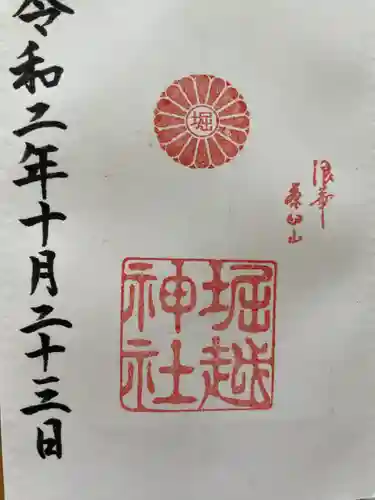 浪華
茶臼山
堀
堀越
神社
令和二年十月二十三日